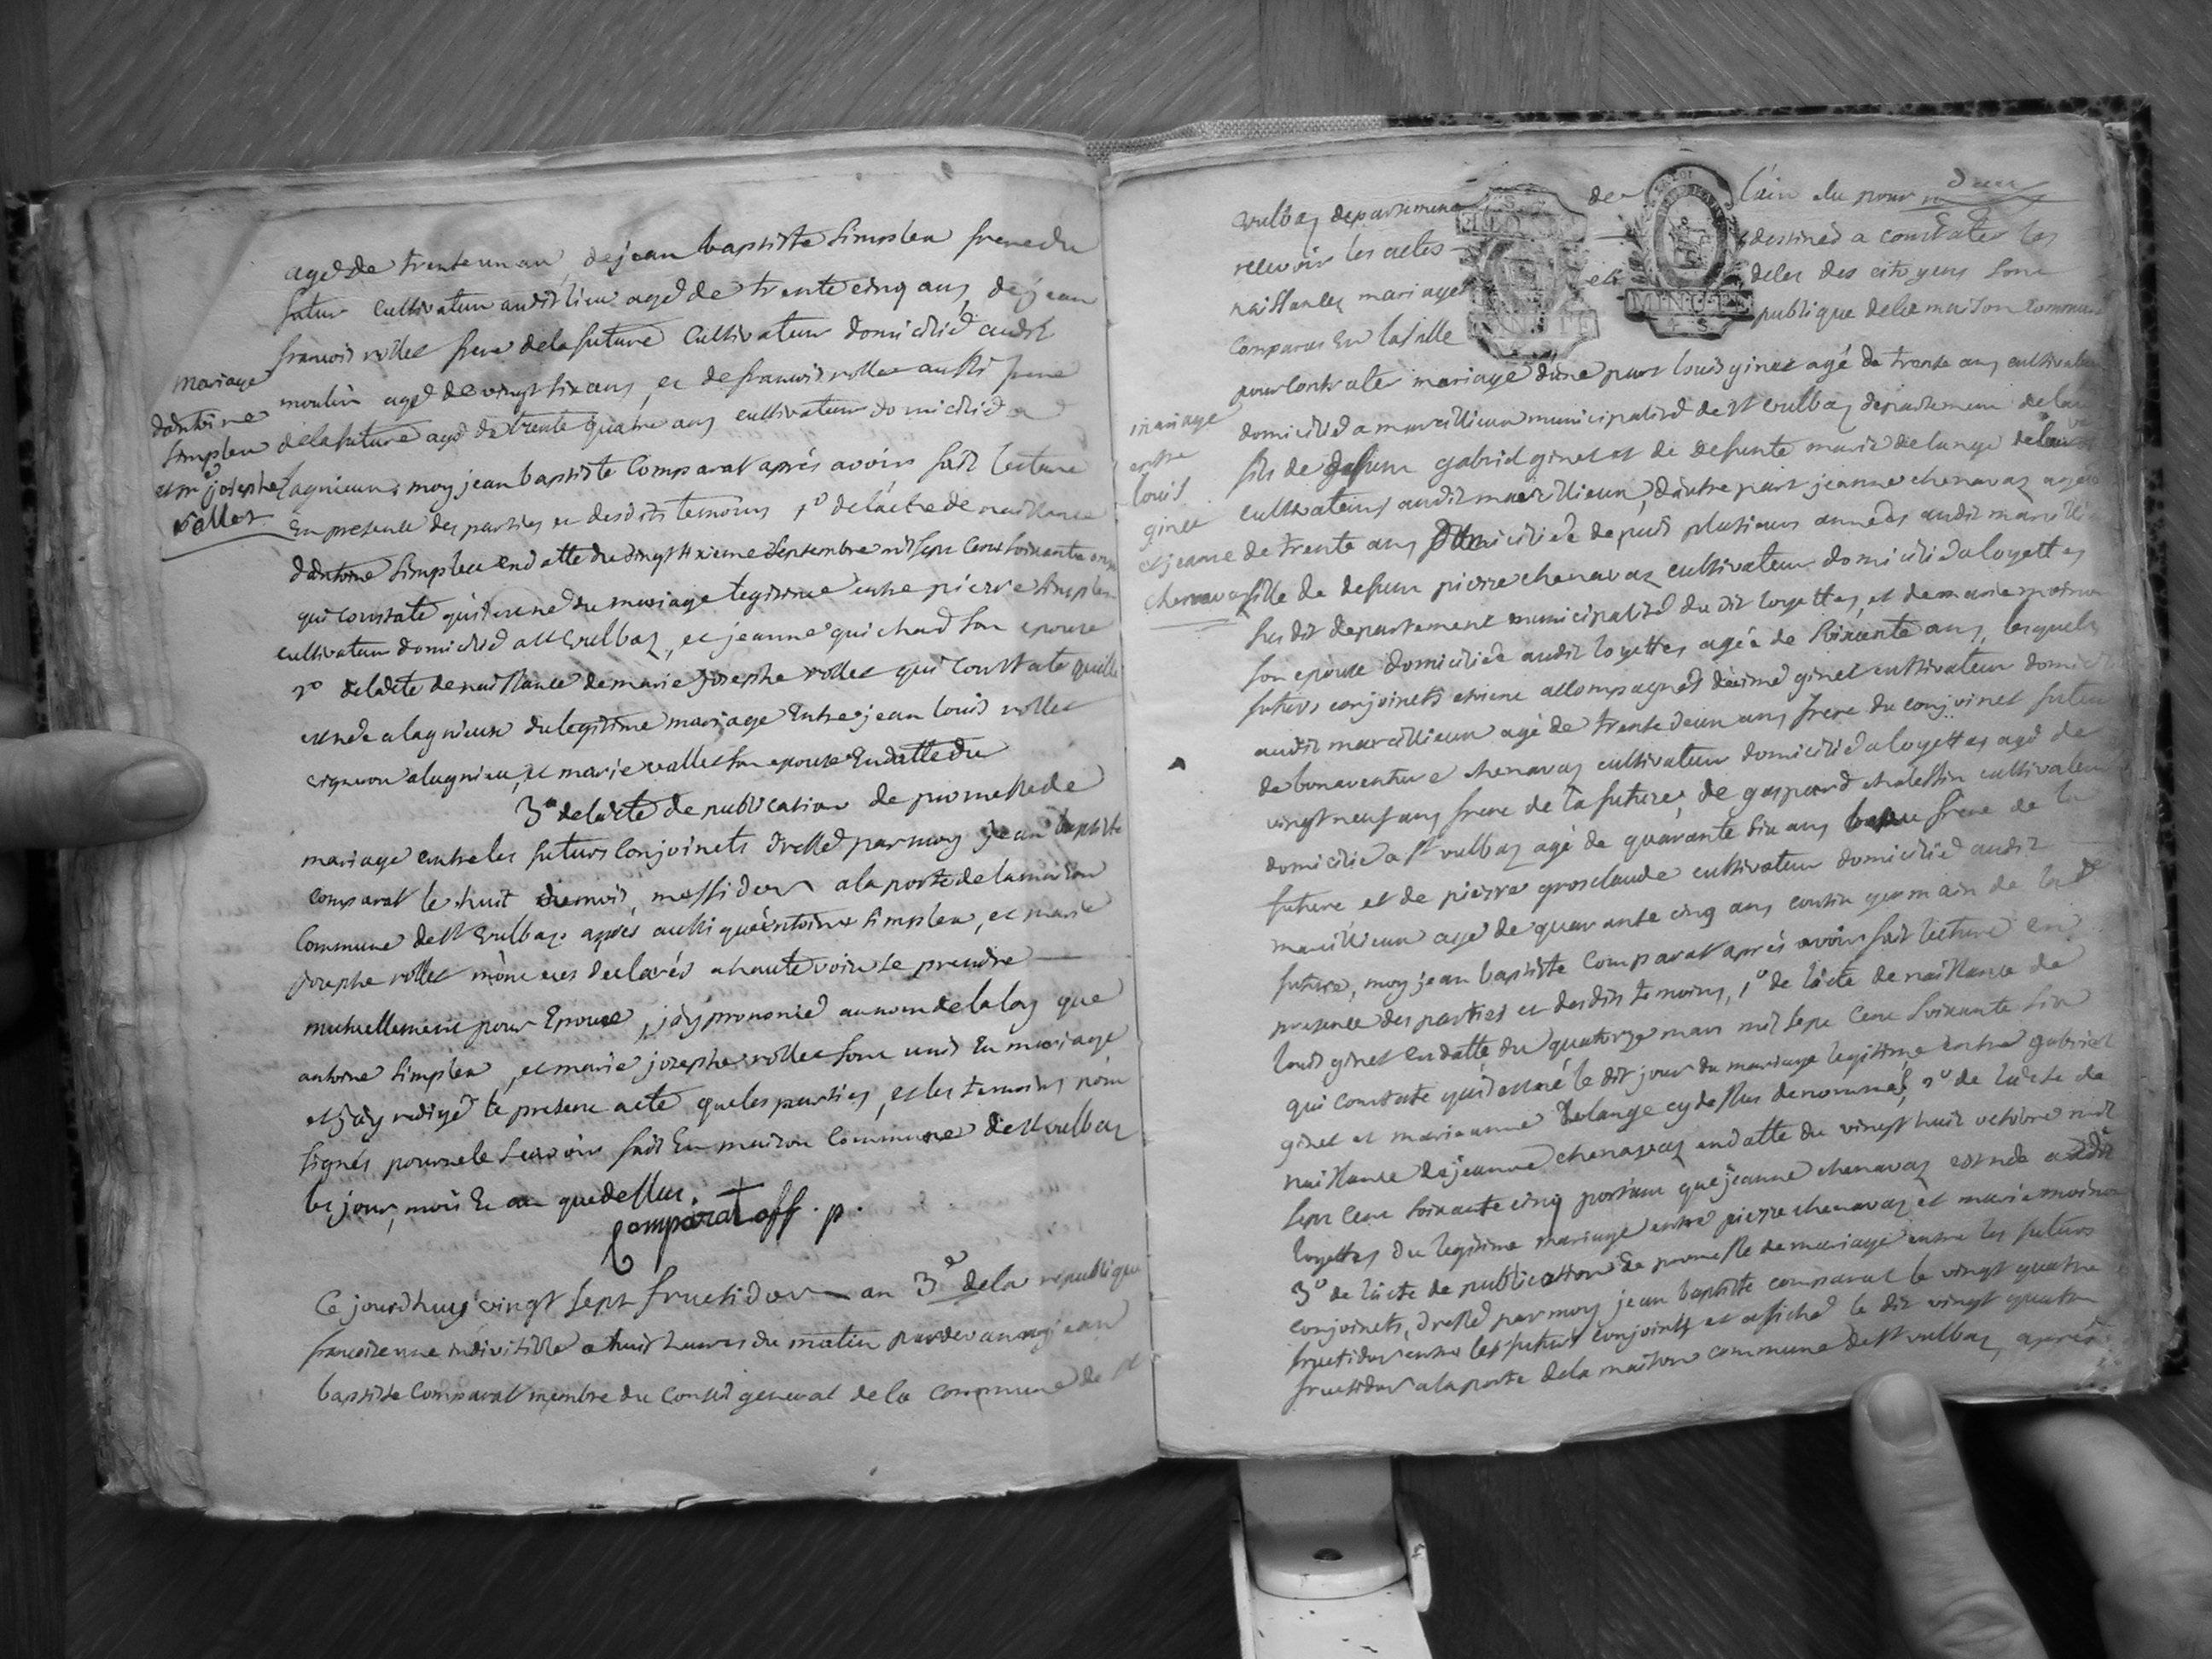 aged de trente un an, de jean baptiste Simplex frere du
futur cultivateur audit lieu aged de trente cinq ans, de jean
francois rollet frere de la future cultivateur domicilied audit
moulin aged de vingt six ans, et de francois rollet aussi frere
de la future aged de trente quatre ans cultivateur domicilied a
lagnieux, moy jean baptiste Comparat aprés avoir fait lecture
En presence des parties et desdits temoins 1º de l'acte de naissance
d'antoine Simplex en datte du vingt sixieme Septembre mil sept cens soixante
qui constate qu'il est né du mariage legitime entre pierre simplex
cultivateur domicilied a st vulbaz, et jeanne quichard son epouse
2º de l'acte de naissance de marie josephe rollet qui constate quelle
est née a lagnieux du legitime mariage Entre jean louis rollet
vigneron a lagnieu, et marie vallet son epouse En datte du
3º de l'acte de publication de promesse de
mariage entre les futurs conjoinets dressé par moy jean baptiste
comparat le huit messidor a la porte de la maison
commune de st vulbaz. aprés aussi qu'antoine simplex, et marie
josephe rollet m'one eus declarés a haute voix se prendre
mutuellement pour Epouse, j'ay prononcé au nom de la loy que
antoine Simplex, et marie josephe rollet sont unis En mariage
et j'ay redigé le present acte que les parties, et les temoins n'ont
signés pour ne le scavoir fait En maison commune de st vulbaz
les jour, mois Et an que dessus.
Comparat off. p.
Ce jourd'huy vingt sept fructidor an 3e de la republique
francoise une indivisible a huit heures du matin pardevant moy jean
baptiste Comparat membre du Conseil general de la commune de st
mariage
d'antoine
Simplex
et me josephe
rollet
vulbaz departement de l'ain elu pour
recevoir les actes destined a constater les
naissances mariages et deles des citoyens sont
comparus En la salle publique de la maison commune
pour contrater mariage d'une part louis ginet agé de trente ans cultivateur
domicilied a marcillieux municipalité de st vulbaz departement de l'ain
fils de defunt gabriel ginet et de defunte marie delange
cultivateurs audit marcillieux, d'autre part jeanne chenavaz agée
de trente ans domiciliée depuis plusieurs années audit marcillieux
fille de defunt pierre chenavaz cultivateur domicilied a loyettes
susdit departement municipalité du dit loyettes, et de marie moinon
son epouse domiciliée audit loyettes agée de soixante ans, lesquels
futurs conjoinets etoient accompagnés d'aimé ginet cultivateur domicilié
audit marcillieux agé de trente deux ans frere du conjoinet futur
de bonaventure chenavaz cultivateur domicilied a loyettes agé de
vingt neuf ans frere de la future, de gaspard chalessin cultivateur
domicilié a st vulbaz agé de quarante six ans beau frere de la
future et de pierre grosclaude cultivateur domicilié audit
marcillieux agé de quarante cinq ans cousin germain de la de
future, moy jean baptiste Comparat aprés avoir fait lecture en
presence des parties et desdits temoins, 1º de l'acte de naissance de
louis ginet en datte du quatorze mars mil sept cent soixante six
qui constate qu'il est né le dit jour du mariage legitime entre gabriel
ginet et marieanne Delange cy dessus denommés, 2º de l'acte de
naissance de jeanne chenavaz en datte du vingt huit octobre mil
sept cent soixante cinq portant que jeanne chenavaz est née audit
loyettes du legitime mariage entre pierre chenavaz et marie moinon
3º de l'acte de publication de promesse de mariage entre les futurs
conjoinets, dressé par moy jean baptiste comparat le vingt quatre
fructidor entre les futurs conjoints et affiched le dit vingt quatre
fructidor a la porte de la maison commune de st vulbaz, aprés
mariage
entre
louis
ginet
et jeanne
chenavaz
MINUTE